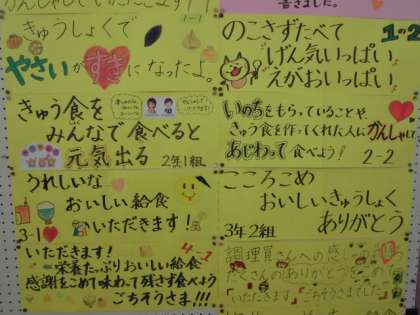 かんしゃして いただこます！！
1-1
きゅうしょくで
やさいがすきになったよ。
書きました。
のこさずたべて
1の2
げん気いっぱい
えがおいっぱい
きゅう食を
みんなで食べると
元気出る 2年1組
いのちをもらっていることや
きゅう食を作ってくれた人にかんしゃし
あじわって食べよう！
2-2
うれしいな
おいしい給食
3-1 いただきます！
こころこめ
おいしいきゅうしょく
3年2組 ありがとう
いただきます！ 4-1
栄養たっぷりおいしい給食
感謝をこめて味わって残さず食べよう
ごちそうさま!!!
調理員さんへの感
たくさんのありがとうを
「いただきます」「ごちそうさまでした」